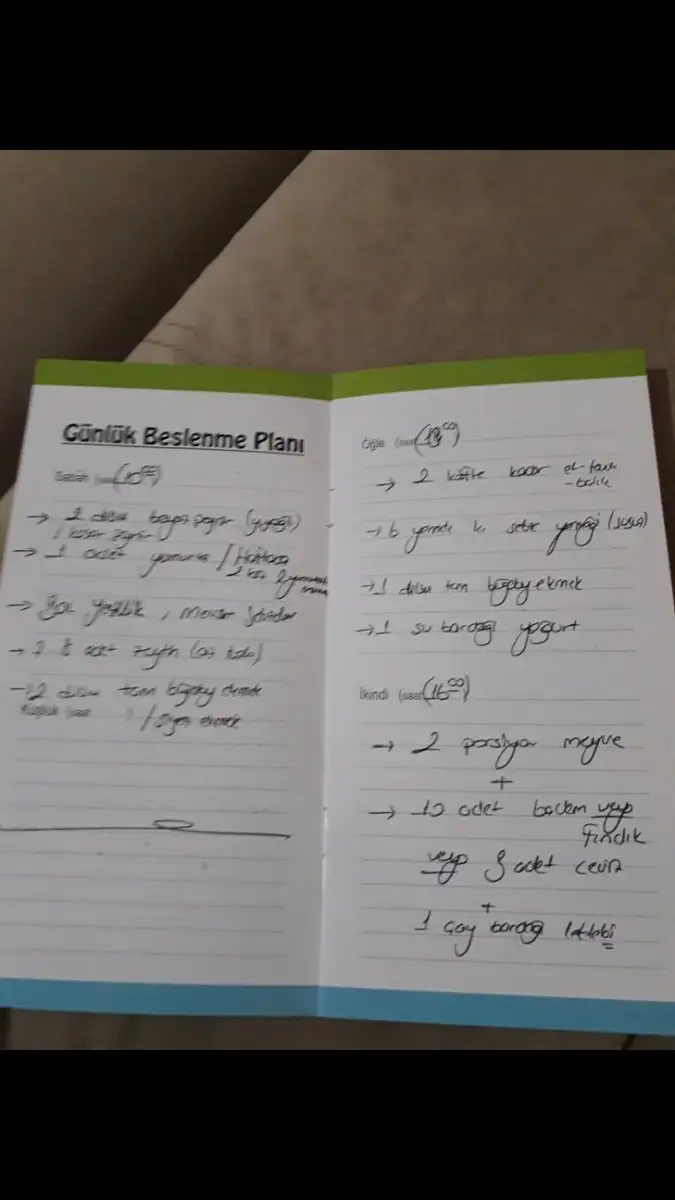 Günlük Beslenme Planı
Sabah (saat (10⁰⁰)
→ 2 dilim beyaz peynir (yarım yağlı)
1 kaşar peynir
→ 1 adet yumurta / Haftada
2 kez 2 yumurtalı
→ Bol yeşillik, mevsim
→ 5 adet zeytin (az tuzlu)
→ 2 dilim tam buğday ekmek
Kuşluk (saat ) / siyez ekmek
Öğle (saat (13⁰⁰)
→ 2 köfte kadar et-tavuk
-balık
→ 6 yemek k. sebze yemeği (susuz)
→ 1 dilim tam buğday ekmek
→ 1 su bardağı yoğurt
İkindi (saat (16⁰⁰)
→ 2 porsiyon meyve
+
→ 10 adet badem veya
fındık
veya 3 adet ceviz
+
1 çay bardağı leblebi